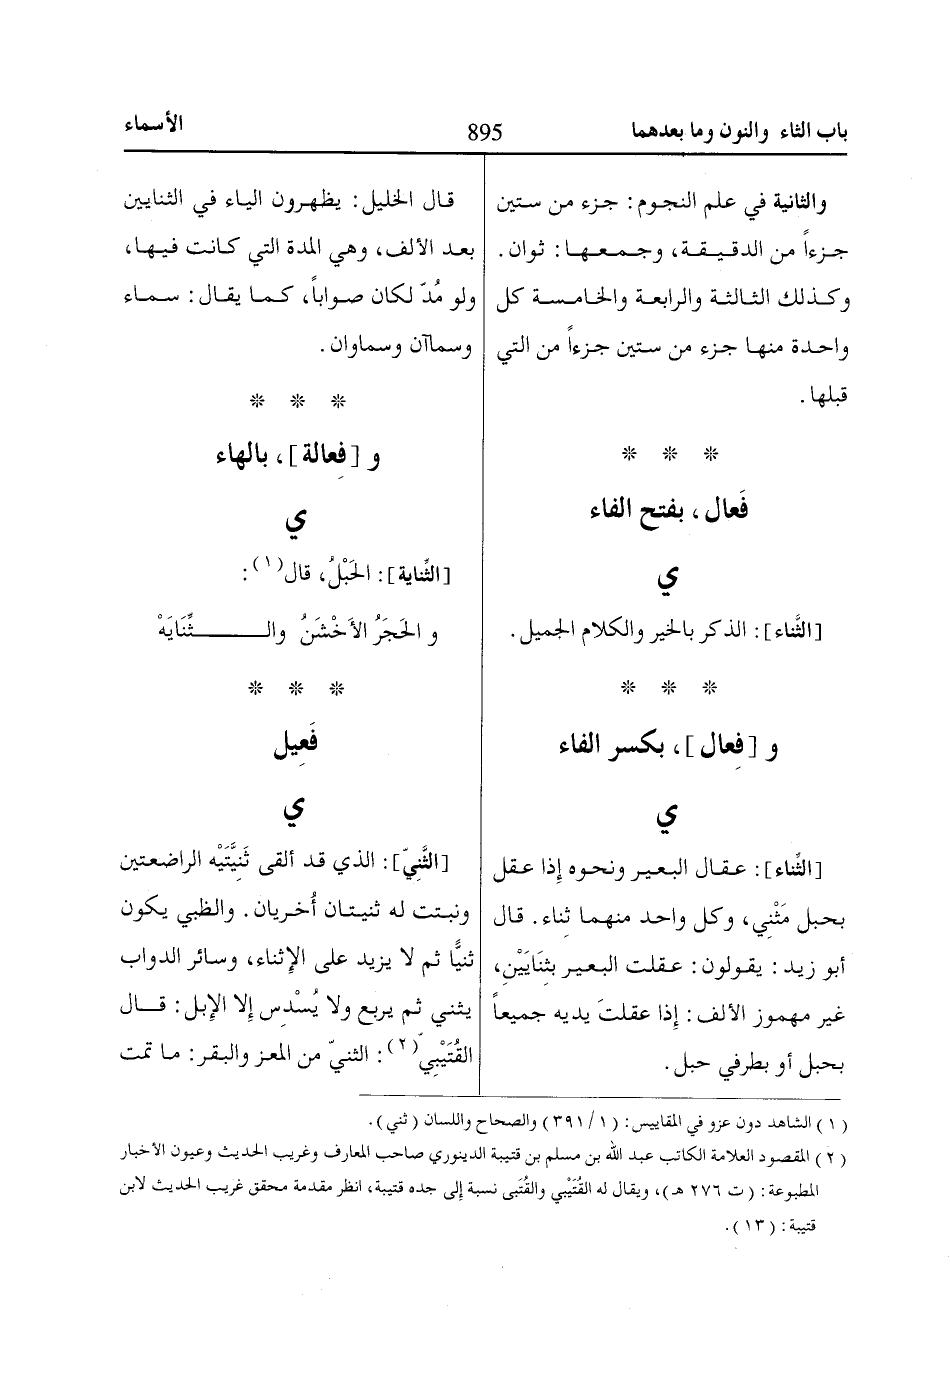 باب الثاء والنون وما بعدهما
895
الأسماء
والثانية في علم النجوم: جزء من ستين
جزءاً من الدقيقة، وجمعها: ثوان.
وكذلك الثالثة والرابعة والخامسة كل
واحدة منها جزء من ستين جزءاً من التي
قبلها.
* * *
فَعال، بفتح الفاء
ي
[الثَّناء]: الذكر بالخير والكلام الجميل.
* * *
و [فِعال]، بكسر الفاء
ي
[الثِّناء]: عقال البعير ونحوه إذا عقل
بحبل مَثْنِي، وكل واحد منهما ثِناء. قال
أبو زيد: يقولون: عقلت البعير بثِنَايَيْنِ،
غير مهموز الألف: إذا عقلتَ يديه جميعاً
بحبل أو بطرفي حبل.
قال الخليل: يظهرون الياء في الثنايين
بعد الألف، وهي المدة التي كانت فيها،
ولو مُدّ لكان صواباً، كما يقال: سماء
وسماآن وسماوان.
* * *
و [فِعالة]، بالهاء
ي
[الثِّناية]: الحَبْلُ، قال(١):
و الحَجَرُ الأَخْشَنُ والـــــثِّنَايَهْ
* * *
فَعِيل
ي
[الثَّنيّ]: الذي قد ألقى ثَنِيَّتَيْه الراضعتين
ونبتت له ثنيتان أُخريان. والظبي يكون
ثنيًّا ثم لا يزيد على الإثناء، وسائر الدواب
يثني ثم يربع ولا يُسْدِس إلا الإبل: قال
القُتَيْبِيّ(٢): الثنيّ من المعز والبقر: ما تمت
(١) الشاهد دون عزو في المقاييس: (١/ ٣٩١) والصحاح واللسان (ثني).
(٢) المقصود العلامة الكاتب عبد الله بن مسلم بن قتيبة الدينوري صاحب المعارف وغريب الحديث وعيون الأخبار
المطبوعة: (ت ٢٧٦ هـ)، ويقال له القُتَيْبي والقُتَبى نسبة إلى جده قتيبة، انظر مقدمة محقق غريب الحديث لابن
قتيبة: (١٣).